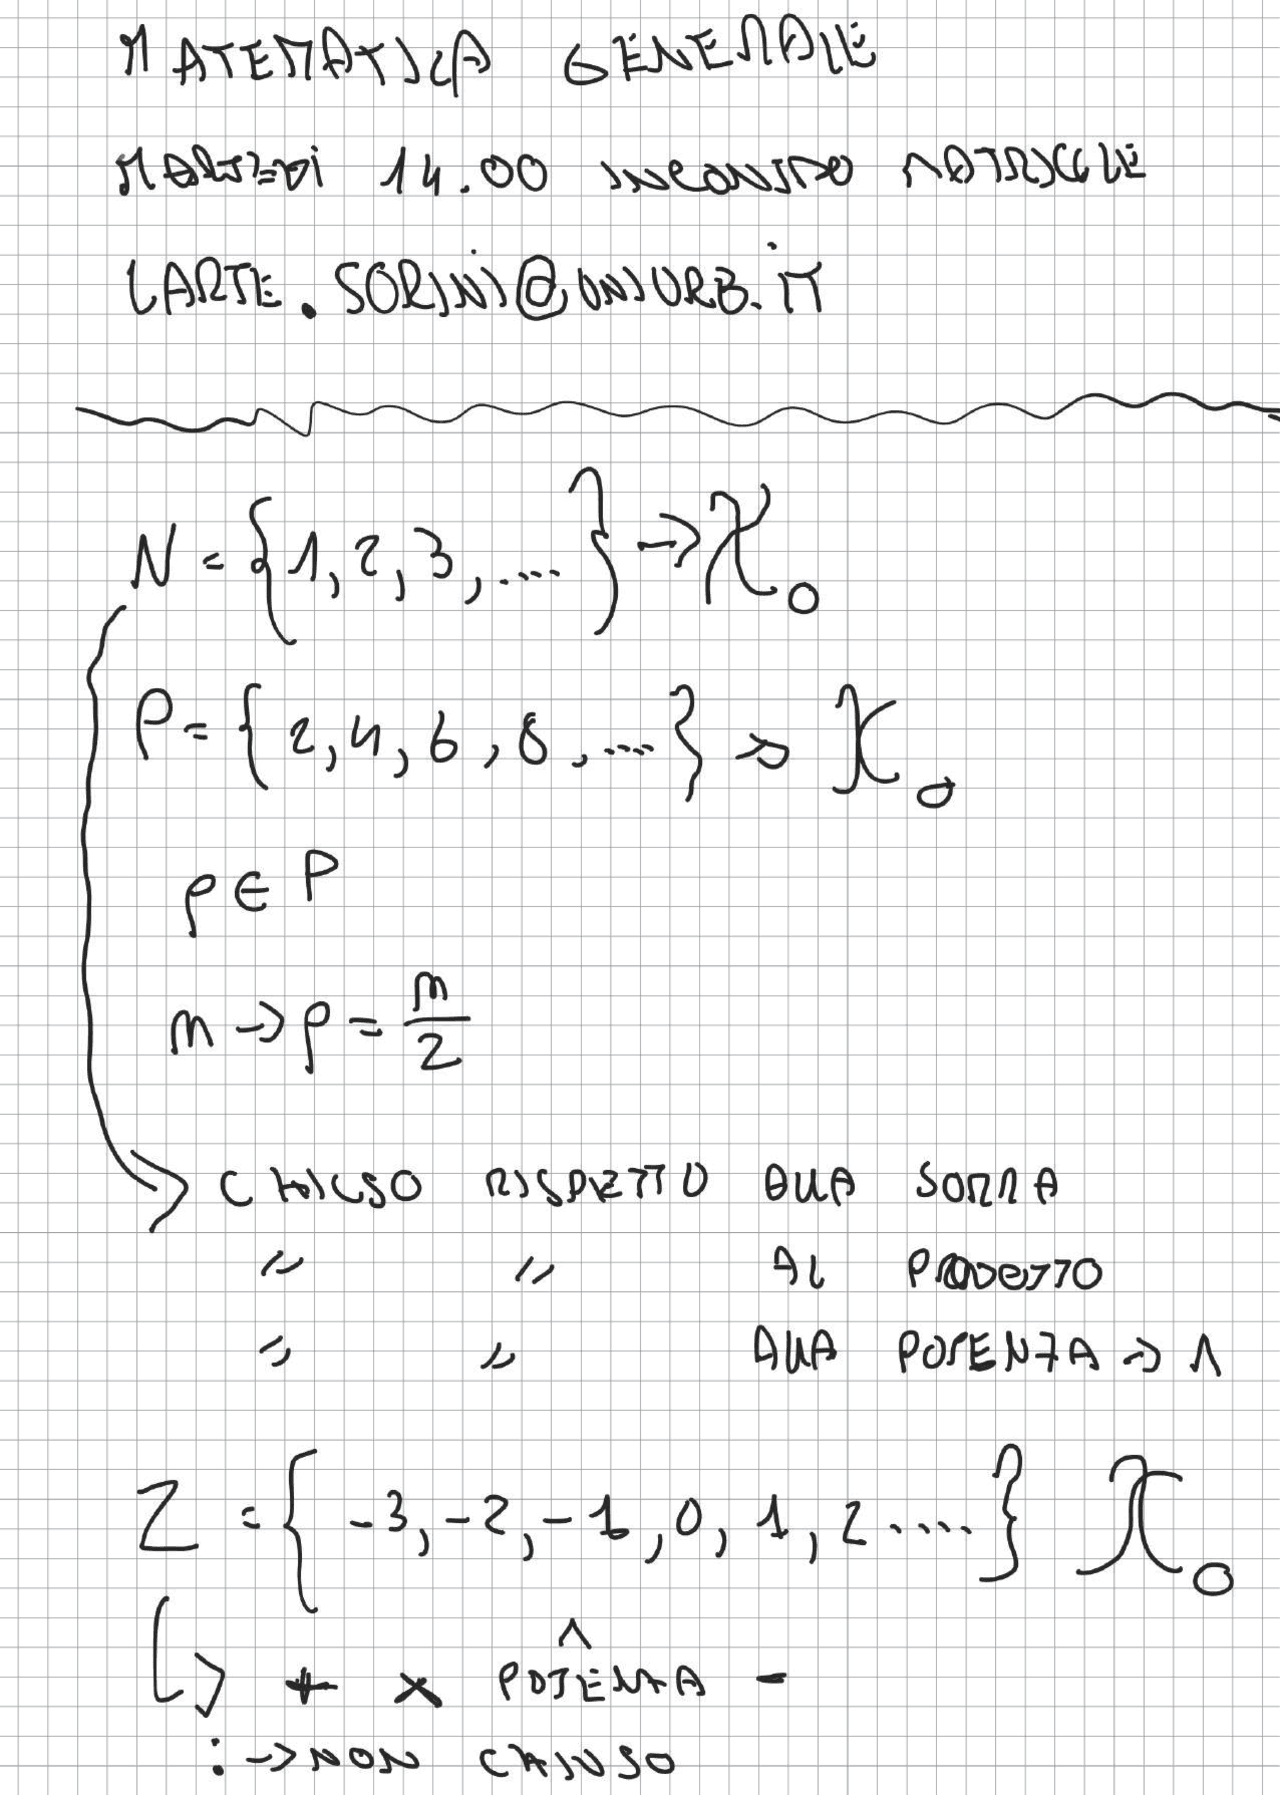 MATEMATICA GENERALE
MARTEDì 14.00 INCONTRO MATRICOLE
LARTE.SORINI@UNIURB.IT
N = {1, 2, 3, ....} → ℵ₀
P = {2, 4, 6, 8, ....} → ℵ₀
p ∈ P
m → p = m/2
CHIUSO RISPETTO ALLA SOMMA
〃 〃 AL PRODOTTO
〃 〃 ALLA POTENZA → ∧
Z = {-3, -2, -1, 0, 1, 2 ....} ℵ₀
∧
↳ + × POTENZA -
: → NON CHIUSO